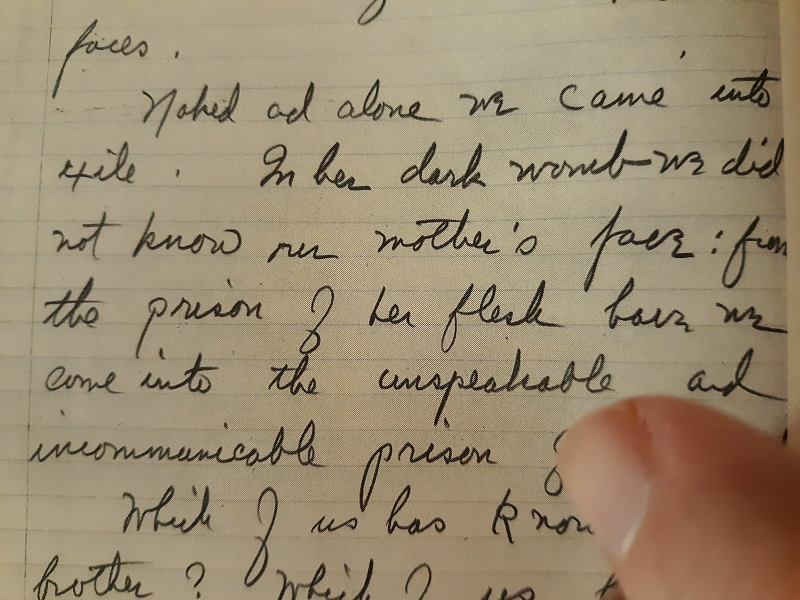 faces.
Naked ad alone we came into
exile. In her dark womb we did
not know our mother's face: from
the prison of her flesh have we
come into the unspeakable and
incommunicable prison
Which of us has know
brother? Which of us